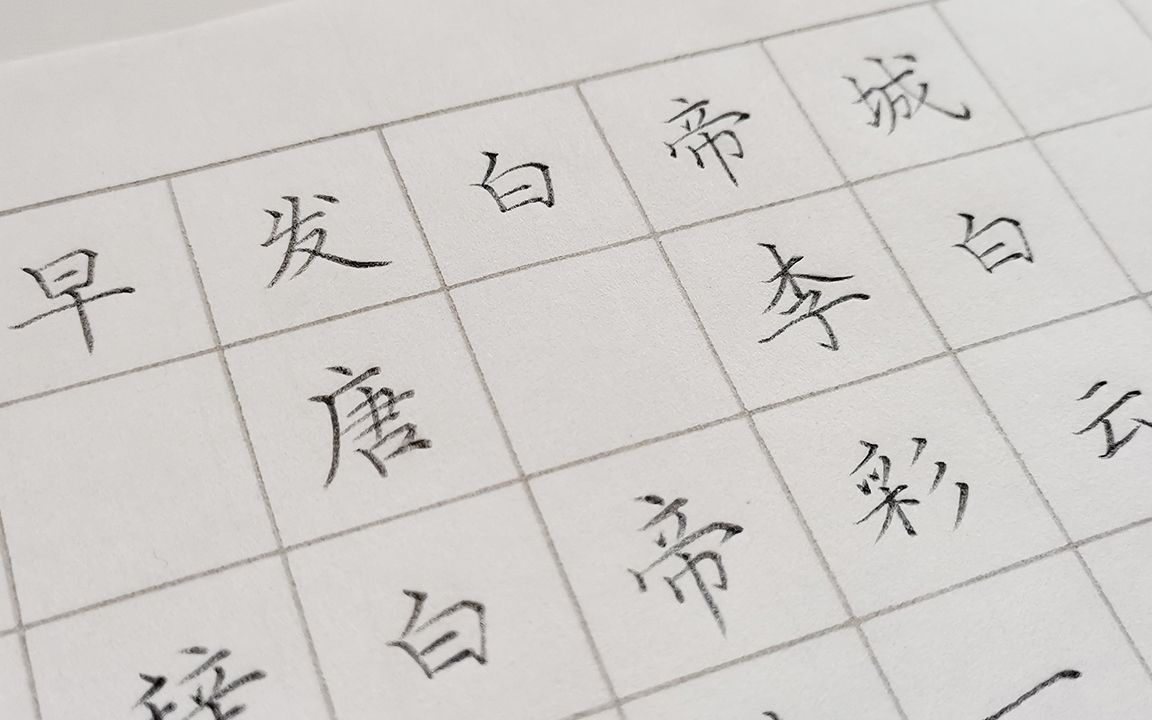 早发白帝城
唐 李白
辞白帝彩云
一